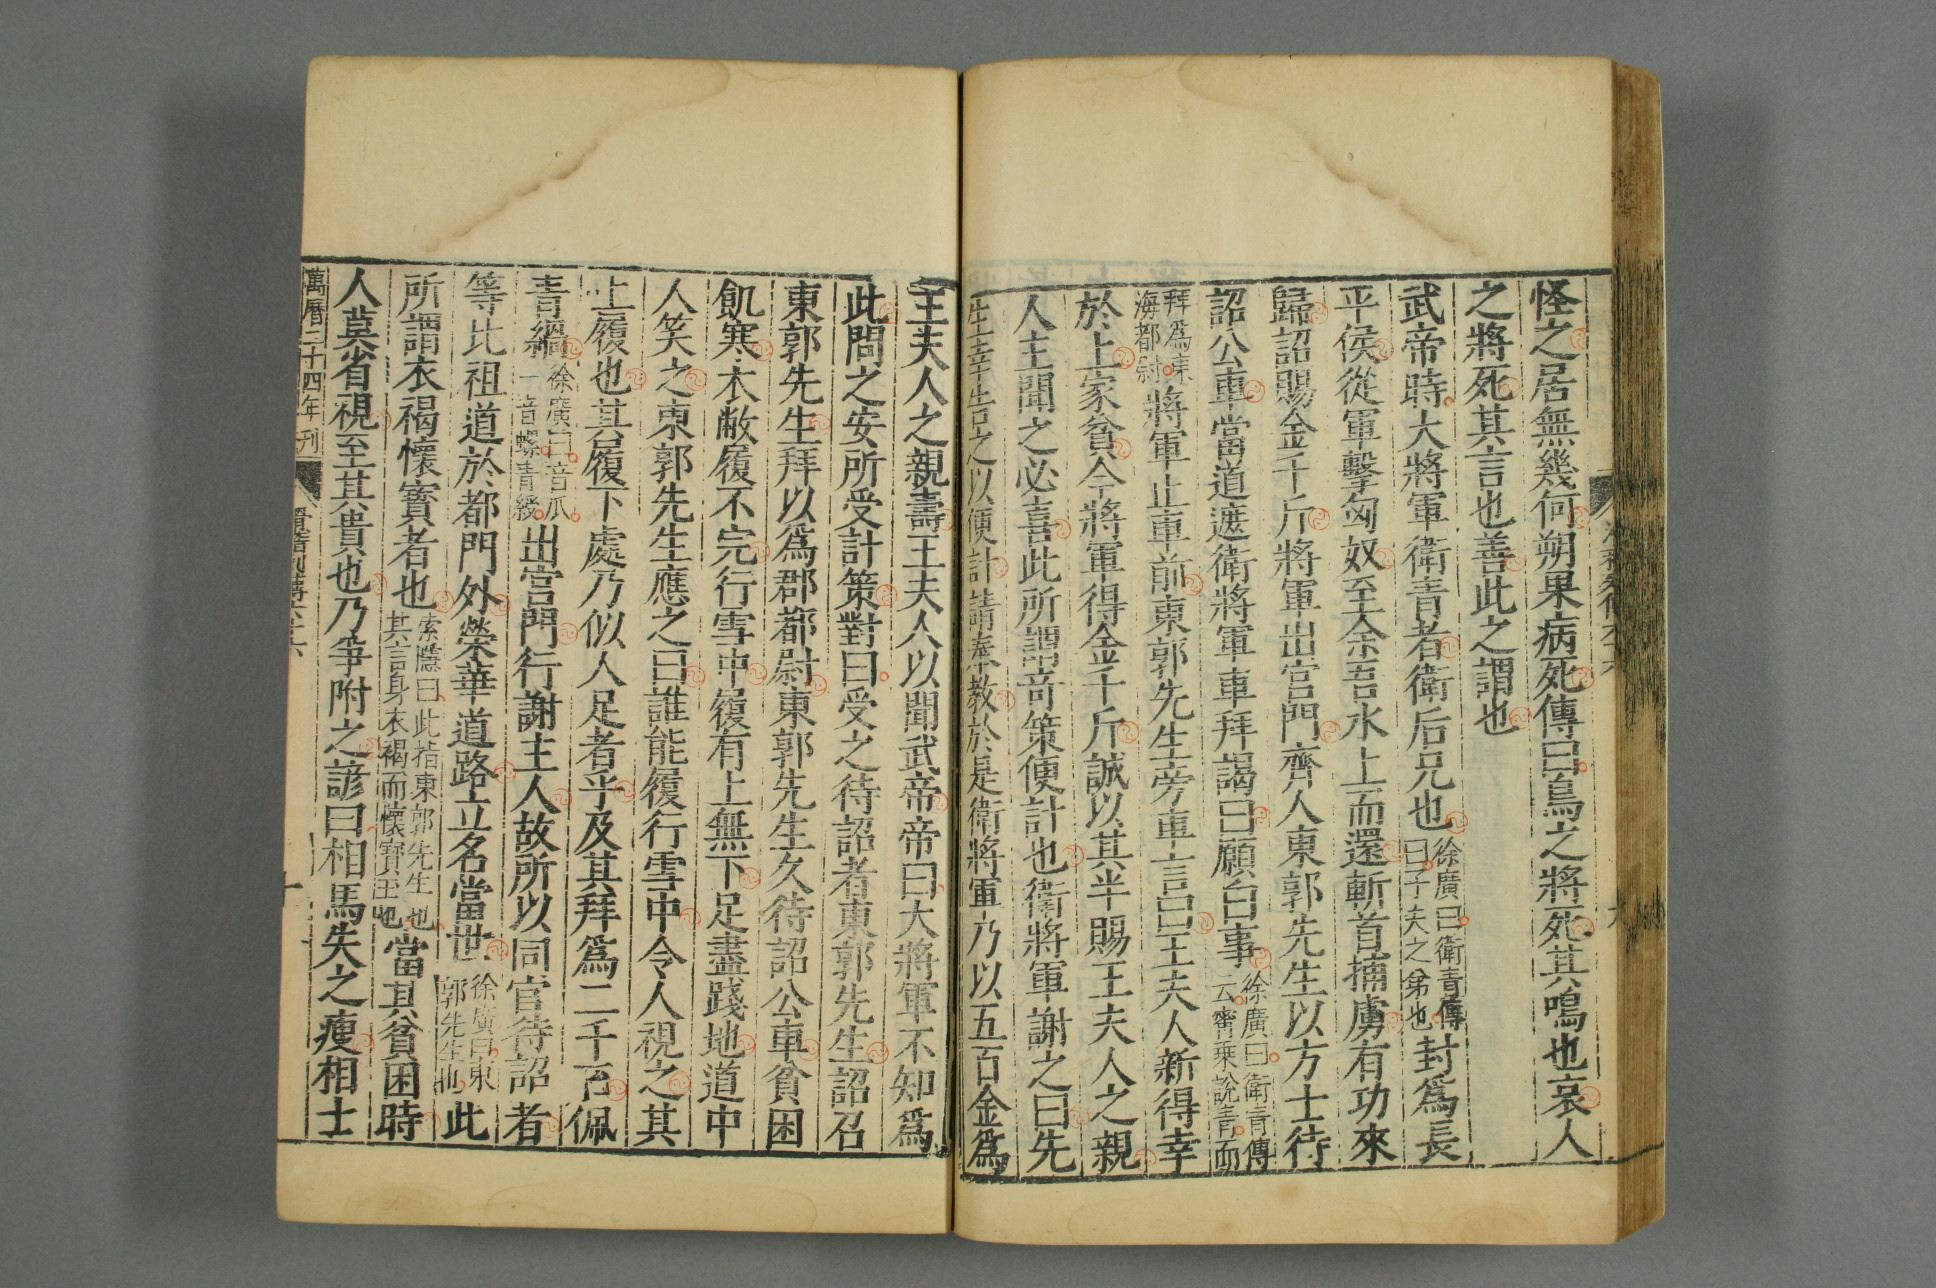 怪之居無幾何朔果病死傳曰鳥之將死其鳴也哀人
之將死其言也善此之謂也
武帝時大將軍衛青者衛后兄也徐廣曰衛青傳曰子夫之弟也封爲長
平侯從軍擊匈奴至余吾水上而還斬首捕虜有功來
歸詔賜金千斤將軍出宫門齊人東郭先生以方士待
詔公車當道遮衛將軍車拜謁曰願白事徐廣曰衛青傳云甯乗說青而
拜爲東海都尉將軍止車前東郭先生旁車言曰王夫人新得幸
於上家貧今將軍得金千斤誠以其半賜王夫人之親
人主聞之必喜此所謂竒策便計也衛將軍謝之曰先
生幸告之以便計請奉教於是衛將軍乃以五百金爲
王夫人之親壽王夫人以聞武帝帝曰大將軍不知爲
此問之安所受計策對曰受之待詔者東郭先生詔召
東郭先生拜以爲郡都尉東郭先生久待詔公車貧困
飢寒衣敝履不完行雪中履有上無下足盡踐地道中
人笑之東郭先生應之曰誰能履行雪中令人視之其
上履也其履下處乃似人足者乎及其拜爲二千石佩
青緺徐廣曰音瓜一音螺青綬出宫門行謝主人故所以同官待詔者
等比祖道於都門外榮華道路立名當世徐廣曰東郭先生也此
所謂衣褐懷寳者也索隱曰此指東郭先生也其言身衣褐而懷寳玉也當其貧困時
人莫省視至其貴也乃爭附之諺曰相馬失之瘦相士
萬曆二十四年刊